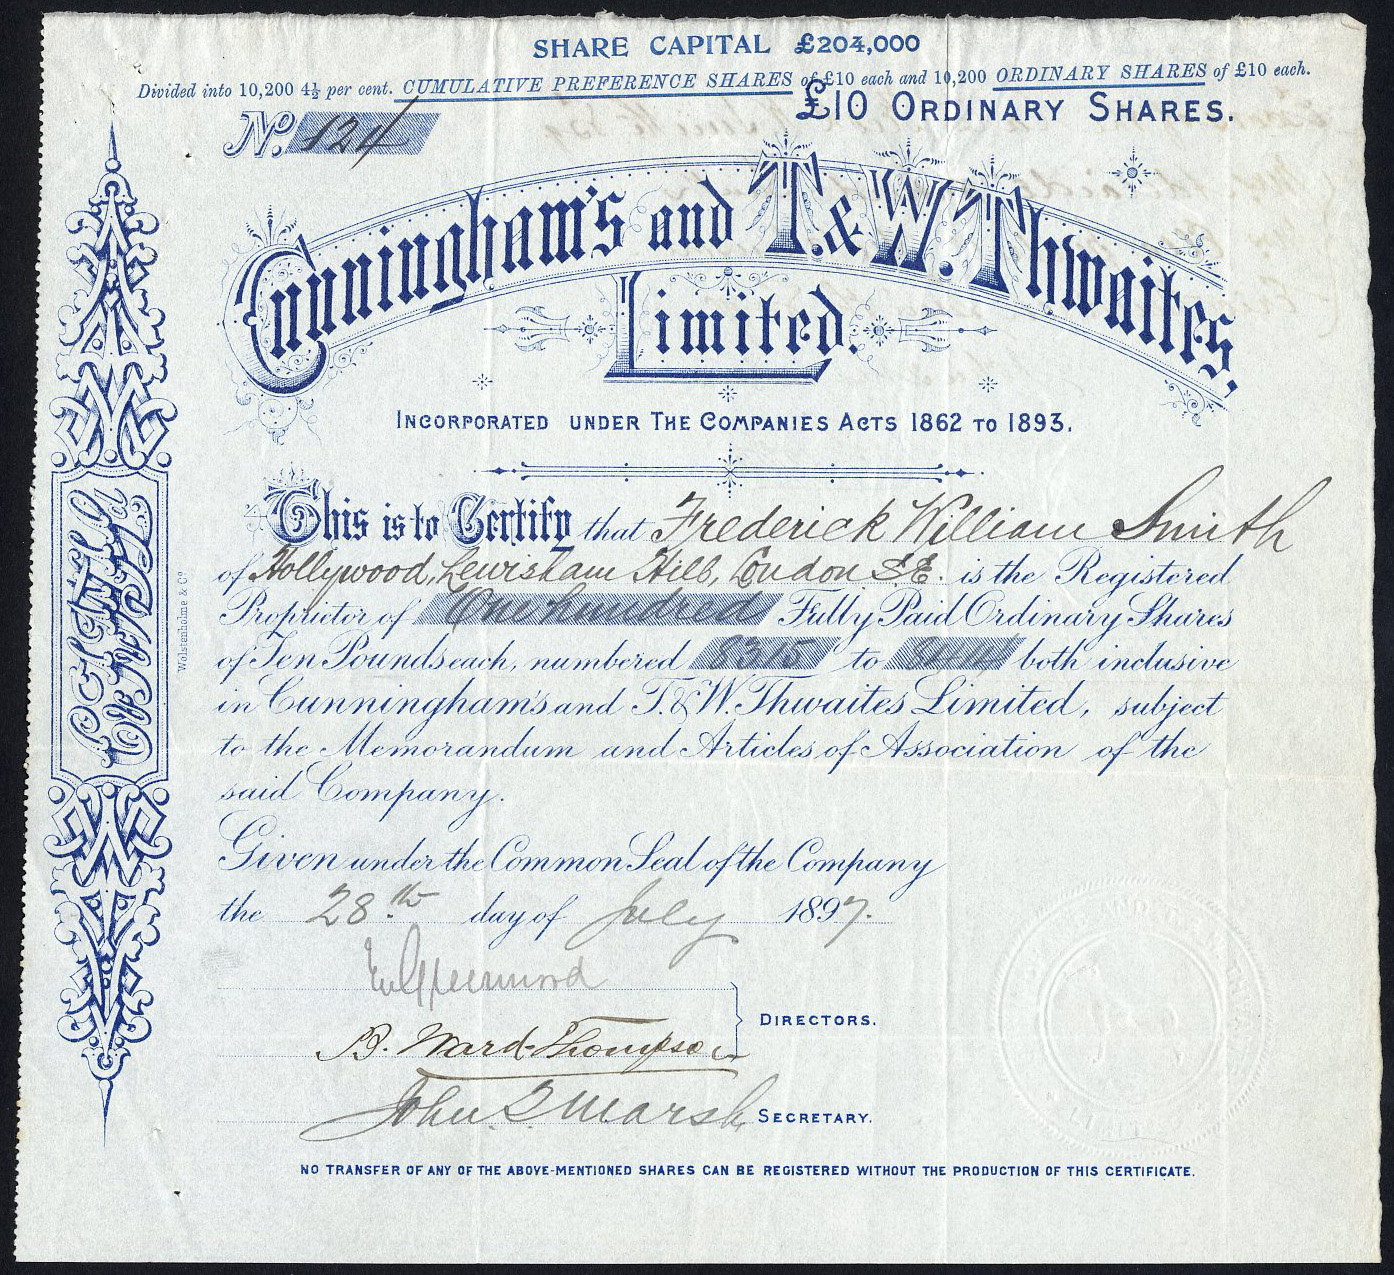 SHARE CAPITAL £204,000
Divided into 10,200 4½ per cent. CUMULATIVE PREFERENCE SHARES of £10 each and 10,200 ORDINARY SHARES of £10 each.
£10 ORDINARY SHARES.
No. 124
Cunningham's and T. & W. Thwaites,
Limited.
INCORPORATED UNDER THE COMPANIES ACTS 1862 TO 1893.
This is to Certify that Frederick William Smith
of Hollywood, Lewisham Hill, London S.E. is the Registered
Proprietor of One hundred Fully Paid Ordinary Shares
of Ten Pounds each, numbered 8315 to 8414 both inclusive
in Cunningham's and T. & W. Thwaites Limited, subject
to the Memorandum and Articles of Association of the
said Company.
Given under the Common Seal of the Company
the 28.th day of July 1897.
Greenwood
B. Ward-Thompson
DIRECTORS.
John Marsh
SECRETARY.
NO TRANSFER OF ANY OF THE ABOVE-MENTIONED SHARES CAN BE REGISTERED WITHOUT THE PRODUCTION OF THIS CERTIFICATE.
Wolstenholme & Co